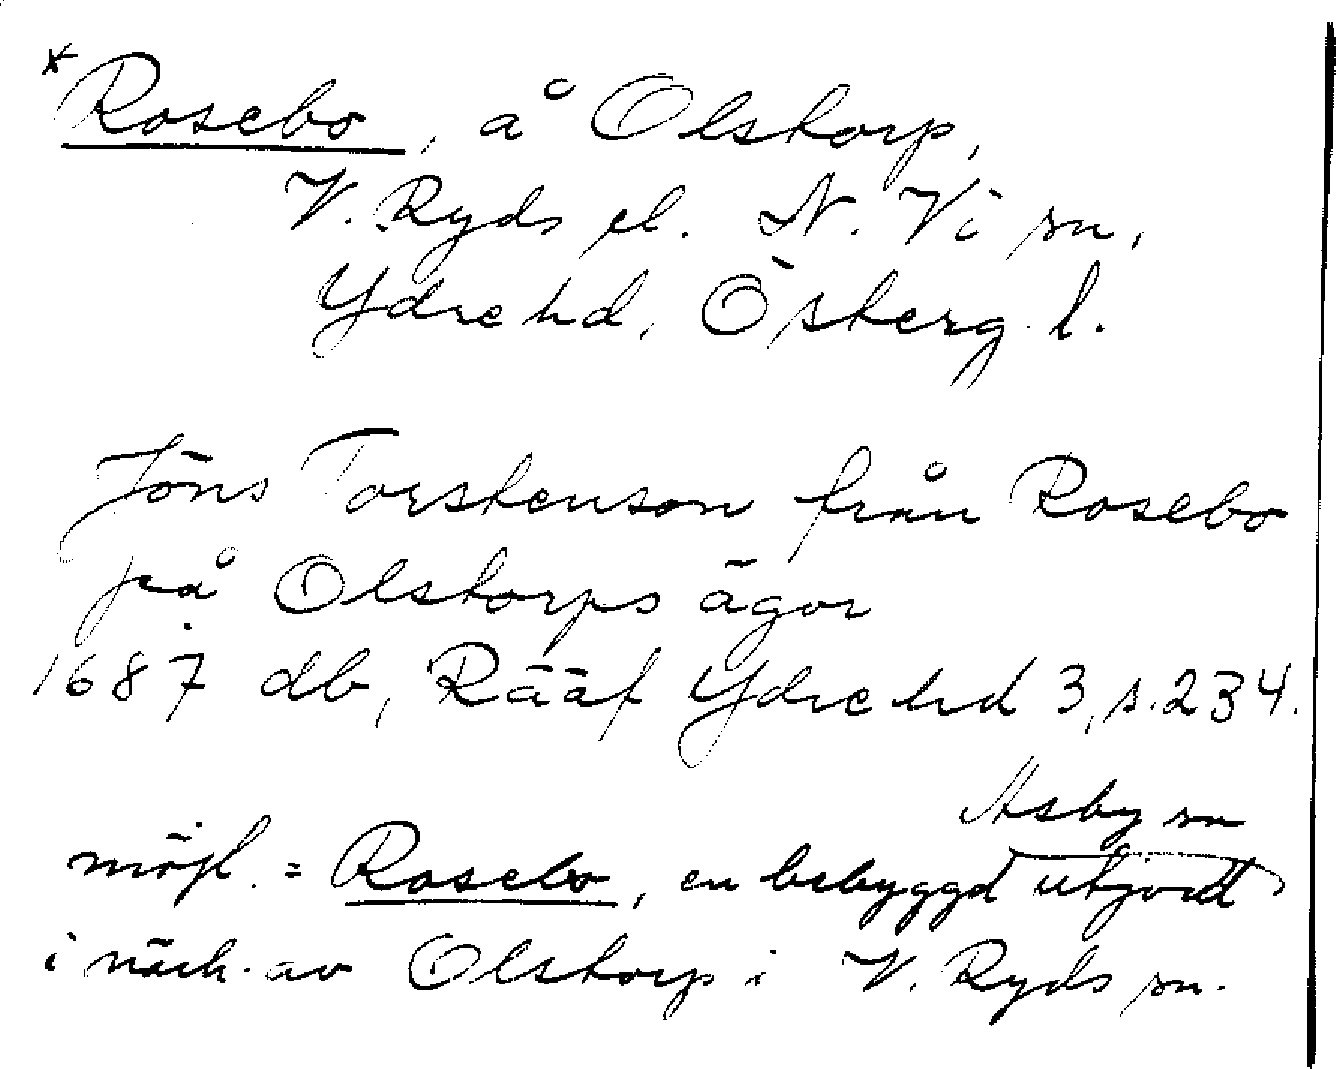 *Rosebo, å Olstorp,
V. Ryds el. N. Vi sn,
Ydre hd, Österg. l.
Jöns Torstenson från Rosebo
på Olstorps ägor
1687 db, Rääf Ydre hd 3, s. 234.
Asby sn
möjl. = Rosebo, en bebyggd utjord
i närh. av Olstorp i V. Ryds sn.